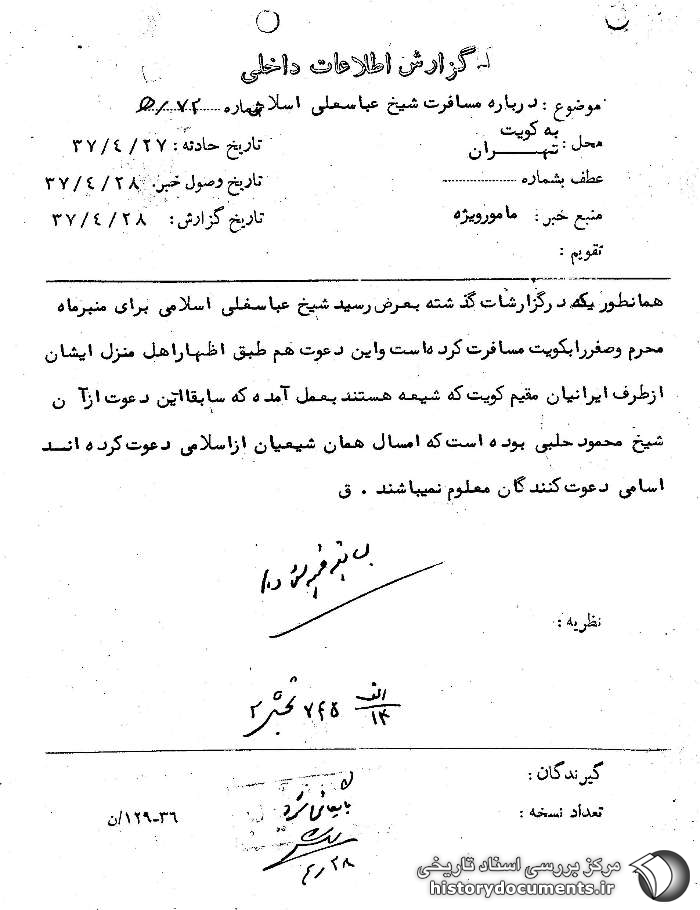 گزارش اطلاعات داخلی
موضوع : درباره مسافرت شیخ عباسعلی اسلامی شماره ۷۲/
به کویت
محل : تهـــران تاریخ حادثه : ۳۷/٤/۲۷
عطف بشماره تاریخ وصول خبر. ۳۷/٤/۲۸
منبع خبر : مامورویژه تاریخ گزارش : ۳۷/٤/۲۸
تقویم :
همانطوریکه درگزارشات گذشته بعرض رسید شیخ عباسعلی اسلامی برای منبرماه
محرم وصفررابکویت مسافرت کرده است واین دعوت هم طبق اظهاراهل منزل ایشان
ازطرف ایرانیان مقیم کویت که شیعه هستند بعمل آمده که سابقااین دعوت ازآ ن
شیخ محمود حلبی بوده است که امسال همان شیعیان ازاسلامی دعوت کرده انــد
اسامی دعوت کنندگان معلوم نمیباشند . ق
نظریه :
الف
۱۳ ۷۴۵ ۲
گیرندگان :
تعداد نسخه : ۳٦-۱۲۹/ن
بایگانی شود
۴/۲۸
مرکز بررسی اسناد تاریخی
historydocuments.ir